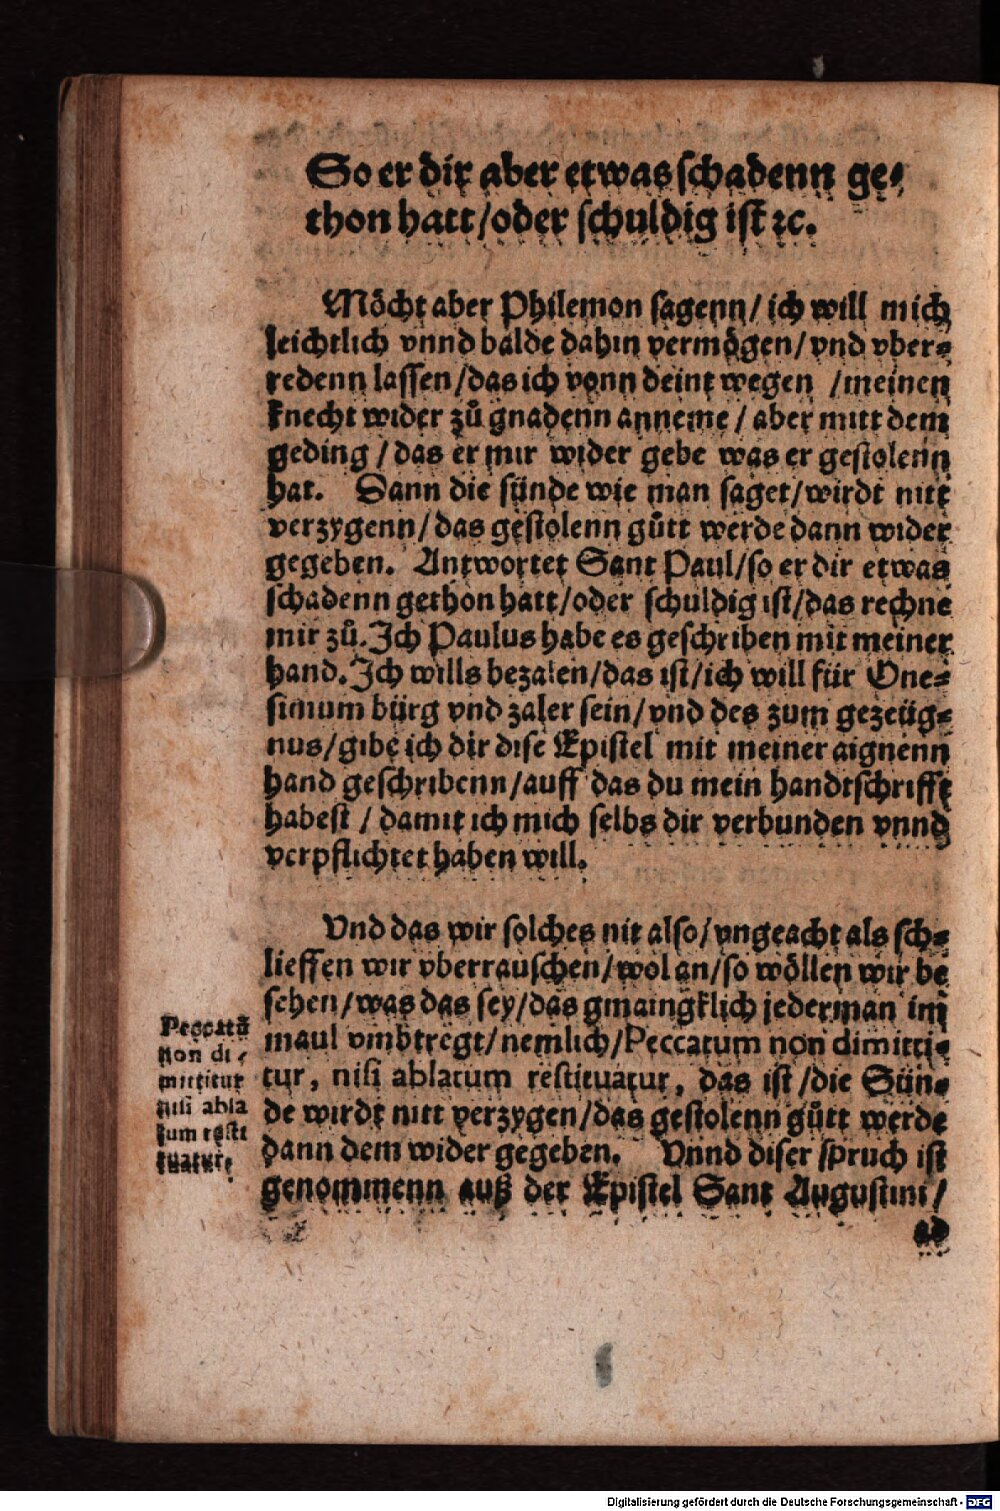 So er dir aber etwas schadenn ge-
thon hatt/oder schuldig ist ꝛc.
Möcht aber Philemon sagenn/ ich will mich
leichtlich vnnd balde dahin vermögen/vnd vber-
redenn lassen/das ich vonn deint wegen /meinen
knecht wider zů gnadenn anneme / aber mitt dem
geding / das er mir wider gebe was er gestolenn
hat. Dann die sünde wie man saget/wirdt nitt
verzygenn/das gestolenn gůtt werde dann wider
gegeben. Antwortet Sant Paul/so er dir etwas
schadenn gethon hatt/oder schuldig ist/das rechne
mir zů. Ich Paulus habe es geschriben mit meiner
hand. Ich wills bezalen/das ist/ich will für One-
simum bürg vnd zaler sein/vnd des zum gezeüg-
nus/gibe ich dir dise Epistel mit meiner aignenn
hand geschribenn/auff das du mein handtschrifft
habest / damit ich mich selbs dir verbunden vnnd
verpflichtet haben will.
Vnd das wir solches nit also/vngeacht als sch-
lieffen wir vberrauschen/wol an/so wöllen wir be
sehen/was das sey/das gmaingklich jederman im
maul vmbtregt/nemlich/Peccatum non dimitti-
tur, nisi ablatum restituatur, das ist /die Sün-
de wirdt nitt verzygen/das gestolenn gůtt werde
dann dem wider gegeben. Vnnd diser spruch ist
genommenn auß der Epistel Sant Augustini/
ad
Peccatū
non di-
mittitur
nisi abla
tum resti
tuatur.
Digitalisierung gefördert durch die Deutsche Forschungsgemeinschaft - DFG